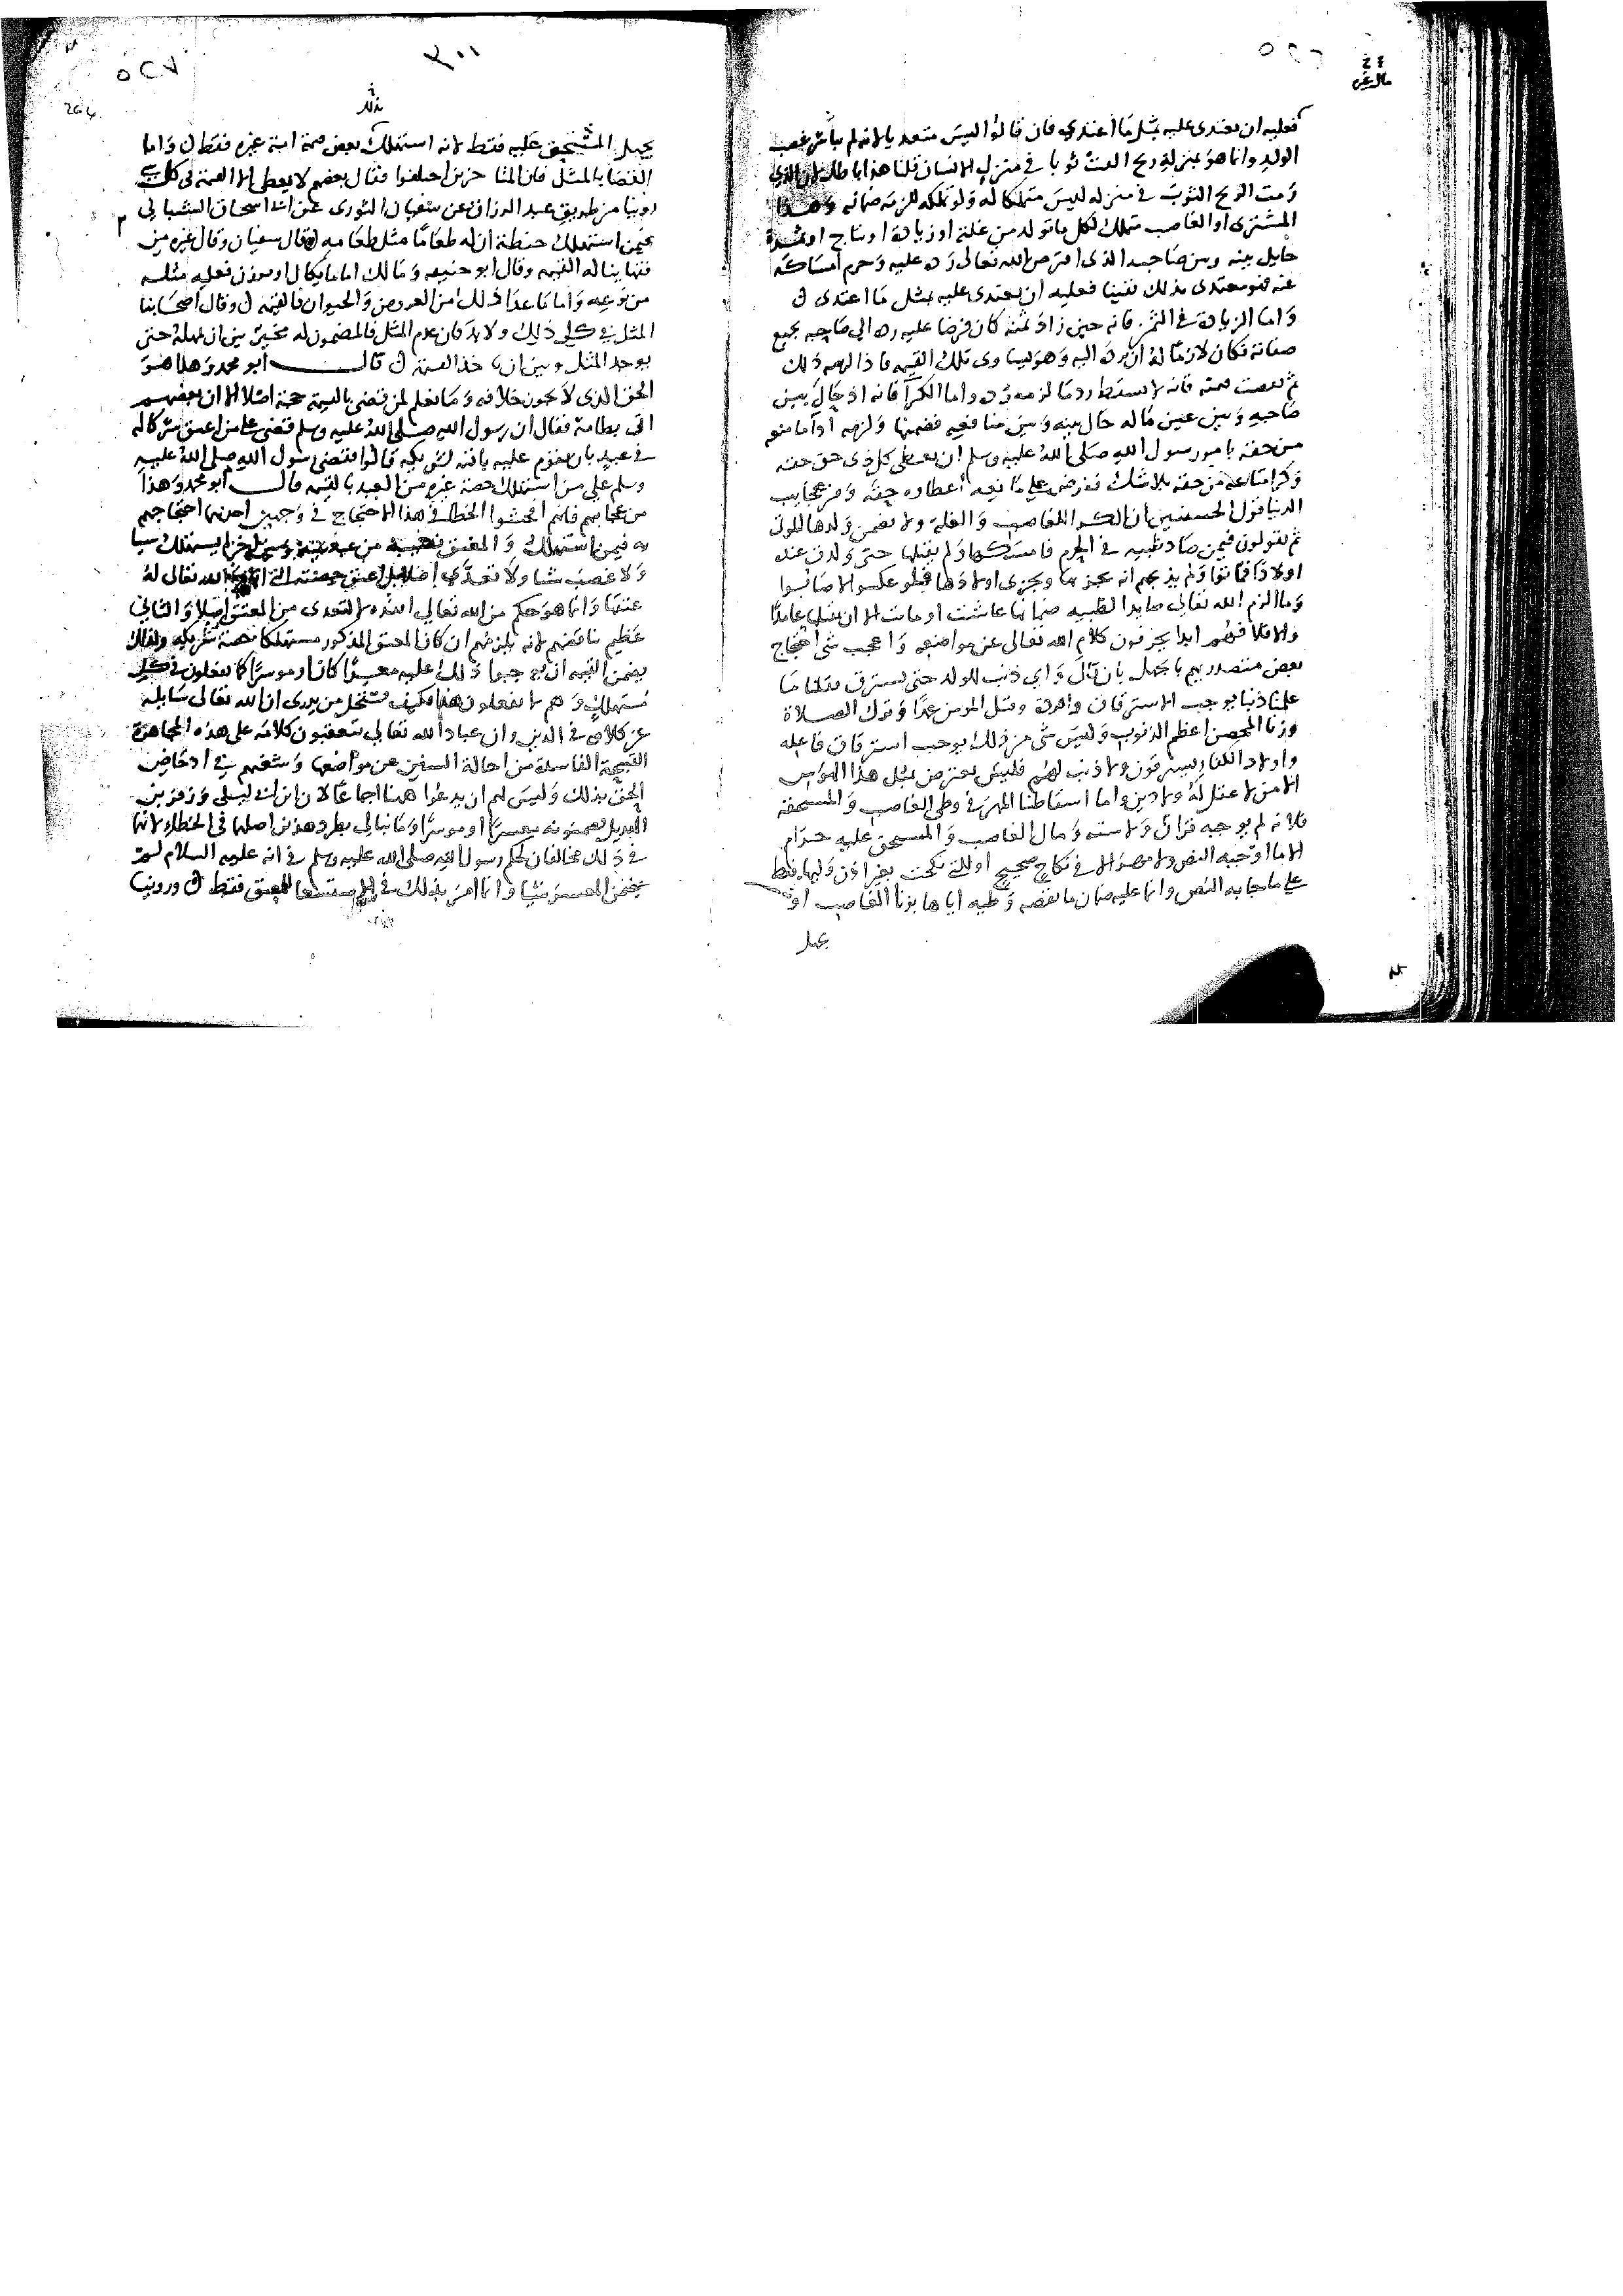 ٥٢٦
فعليه ان يعتدى عليه بمثل ما اعتدى فان قالوا ليس متعديا لانه لم يباشر غصب
الولد وانما هو بمنزلة ريح القت ثوبا في منزل الانسان قلنا هذا باطل لان الذي
رمت الريح الثوب في منزله ليس متملكا له ولو تملكه للزمه ضمانه وهذا
المشترى او الغاصب متملك لكل ما تولد من غلة او زيادة او نتاج او ثمرة
حايل بينه وبين صاحبه الذى افترض الله تعالى رده عليه وحرم امساكه
عنه فهو معتدى بذلك يقينا فعليه ان يعتدى عليه بمثل ما اعتدى
واما الزيادة في الثمن فانه حين زاد ثمنه كان فرضا عليه رده الى صاحبه بجميع
صفاته فكان لازما له ان يرده اليه وهو يساوى تلك القيمة فاذا لزمه ذلك
ثم نقصت قيمته فانه لا يسقط رد ما لزمه رده واما الكرآ فانه اذ حال بين
صاحبه وبين عين ماله حال بينه وبين منافعه فضمنها ولزمه ادآ ما منعه
من حقه بامر رسول الله صلى الله عليه وسلم ان يعطى كل ذى حق حقه
وكرا متاعه من حقه بلا شك ففرض على مانعه اعطاوه حقه ومن عجايب
الدنيا قول الحنفيين ان الكرا للغاصب والغلة ولا يضمن ولدها الموتى
ثم يقولون فيمن صاد ظبية في الحرم فامسكها ولم يقتلها حتى ولدت عنده
اولادا فماتوا ولم يذبحهم انه يجزيها ويجزى اولادها فلو عكسوا لاصابوا
وما الزم الله تعالى صايد الظبيه ضمانها عاشت او ماتت الا ان يقتلها عامدا
والا فلا فهم ابدا يحرفون كلام الله تعالى عن مواضعه واعجب شى احتجاج
بعض متصدريهم بالجهل بان قال واى ذنب للولد حتى يسترق فقلنا ما
علمنا ذنبا يوجب الاسترقاق والردة وقتل المومن عمدا وترك الصلاة
وزنا المحصن اعظم الذنوب وليس شى من ذلك يوجب استرقاق فاعله
واولاد الكفار يسترقون ولا ذنب لهم فليس يعترض بمثل هذا الهوس
الا من لا عقل له ولا دين واما اسقاطنا المهر في وطى الغاصب والمستحقه
فلانه لم يوجبه قران ولا سنه ومال الغاصب والمستحق عليه حرام
الا ما اوجبه النص ولا مهر الا في نكاح صحيح او للتي نكحت بغير اذن وليها فقط
على ما جا به النص وانما عليه ضمان ما نقصه وطيه اياها بزنا الغاصب او
بجهل
٥٢٧
٣٠١
264
بجهل المستحق عليه فقط لانه استهلك بعض قيمة امة غيره فقط واما
القضا بالمثل فان المتاخرين اختلفوا فقال بعضهم لا يعطى الا القيمة في كل شي
روينا من طريق عبد الرزاق عن سفيان الثورى عن ابي اسحاق الشيباني
فيمن استهلك حنطة ان له طعاما مثل طعامه قال سفيان وقال غيره من
فقهاينا له القيمه وقال ابو حنيفه ومالك اما ما يكال او يوزن فعليه مثله
من نوعه واما ما عدا ذلك من العروض والحيوان فالقيمه وقال اصحابنا
المثل في كل ذلك ولا بد فان عدم المثل فالمضمون له مخير بين ان يمهله حتى
يوجد المثل وبين ان ياخذ القيمة قال ابو محمد وهذا هو
الحق الذى لا يجوز خلافه وما نعلم لمن قضى بالقيمة حجة اصلا الا ان بعضهم
اتى بطامة فقال ان رسول الله صلى الله عليه وسلم قضى على من اعتق شركا له
في عبد بان يقوم عليه باقيه لشريكه قالوا فقضى رسول الله صلى الله عليه
وسلم على من استهلك حصة غيره من العبد بالقيمه قال ابو محمد وهذا
من عجايبهم فانهم افحشوا الخطا في هذا الاحتجاج في وجهين احدهما احتجاجهم
به فيمن استهلك والمعتق نصيبه من عبد بينه وبين اخر لم يستهلك شيا
ولا غصب شيا ولا تعدى اصلا بل اعتق حصته التي اباح الله تعالى له
عتقها وانما هو حكم من الله تعالى انفذه لا لتعدى من المعتق اصلا والثاني
عظيم تناقضهم لانه يلزمهم ان كان المعتق المذكور مستهلكا حصة شريكه ولذلك
يضمن القيمه ان يوجبوا ذلك عليه معسرا كان او موسرا كما يفعلون في كل
مستهلك وهم لا يفعلون هذا فكيف يستحل من يدرى ان الله تعالى سايله
عن كلامه في الدين وان عباد الله تعالى يتعقبون كلامه على هذه المجاهرة
القبيحة الفاسدة من احالة السنن عن مواضعها وسعيهم في ادحاض
الحق بذلك وليس لهم ان يدعوا ههنا اجماعا لان ابن ابي ليلى وزفر بن
الهذيل يضمنونه معسرا او موسرا وما نبالي بطرد هذين اصلهما في الخطا لانهما
في ذلك مخالفان لحكم رسول الله صلى الله عليه وسلم في انه عليه السلام لم
يضمن المعسر شيا وانما امر بذلك في الاستسعا للمعتق فقط وروينا